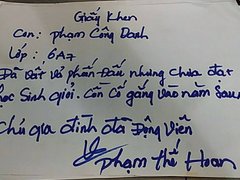 Giấy Khen
Con: phạm Công Danh
Lớp: 6A7
Đã rất vả phấn Đấu nhưng chưa đạt
học Sinh giỏi. Còn Cố gắng vào năm Sau
Chú gia đình đã Động Viên
phạm thế Hoan